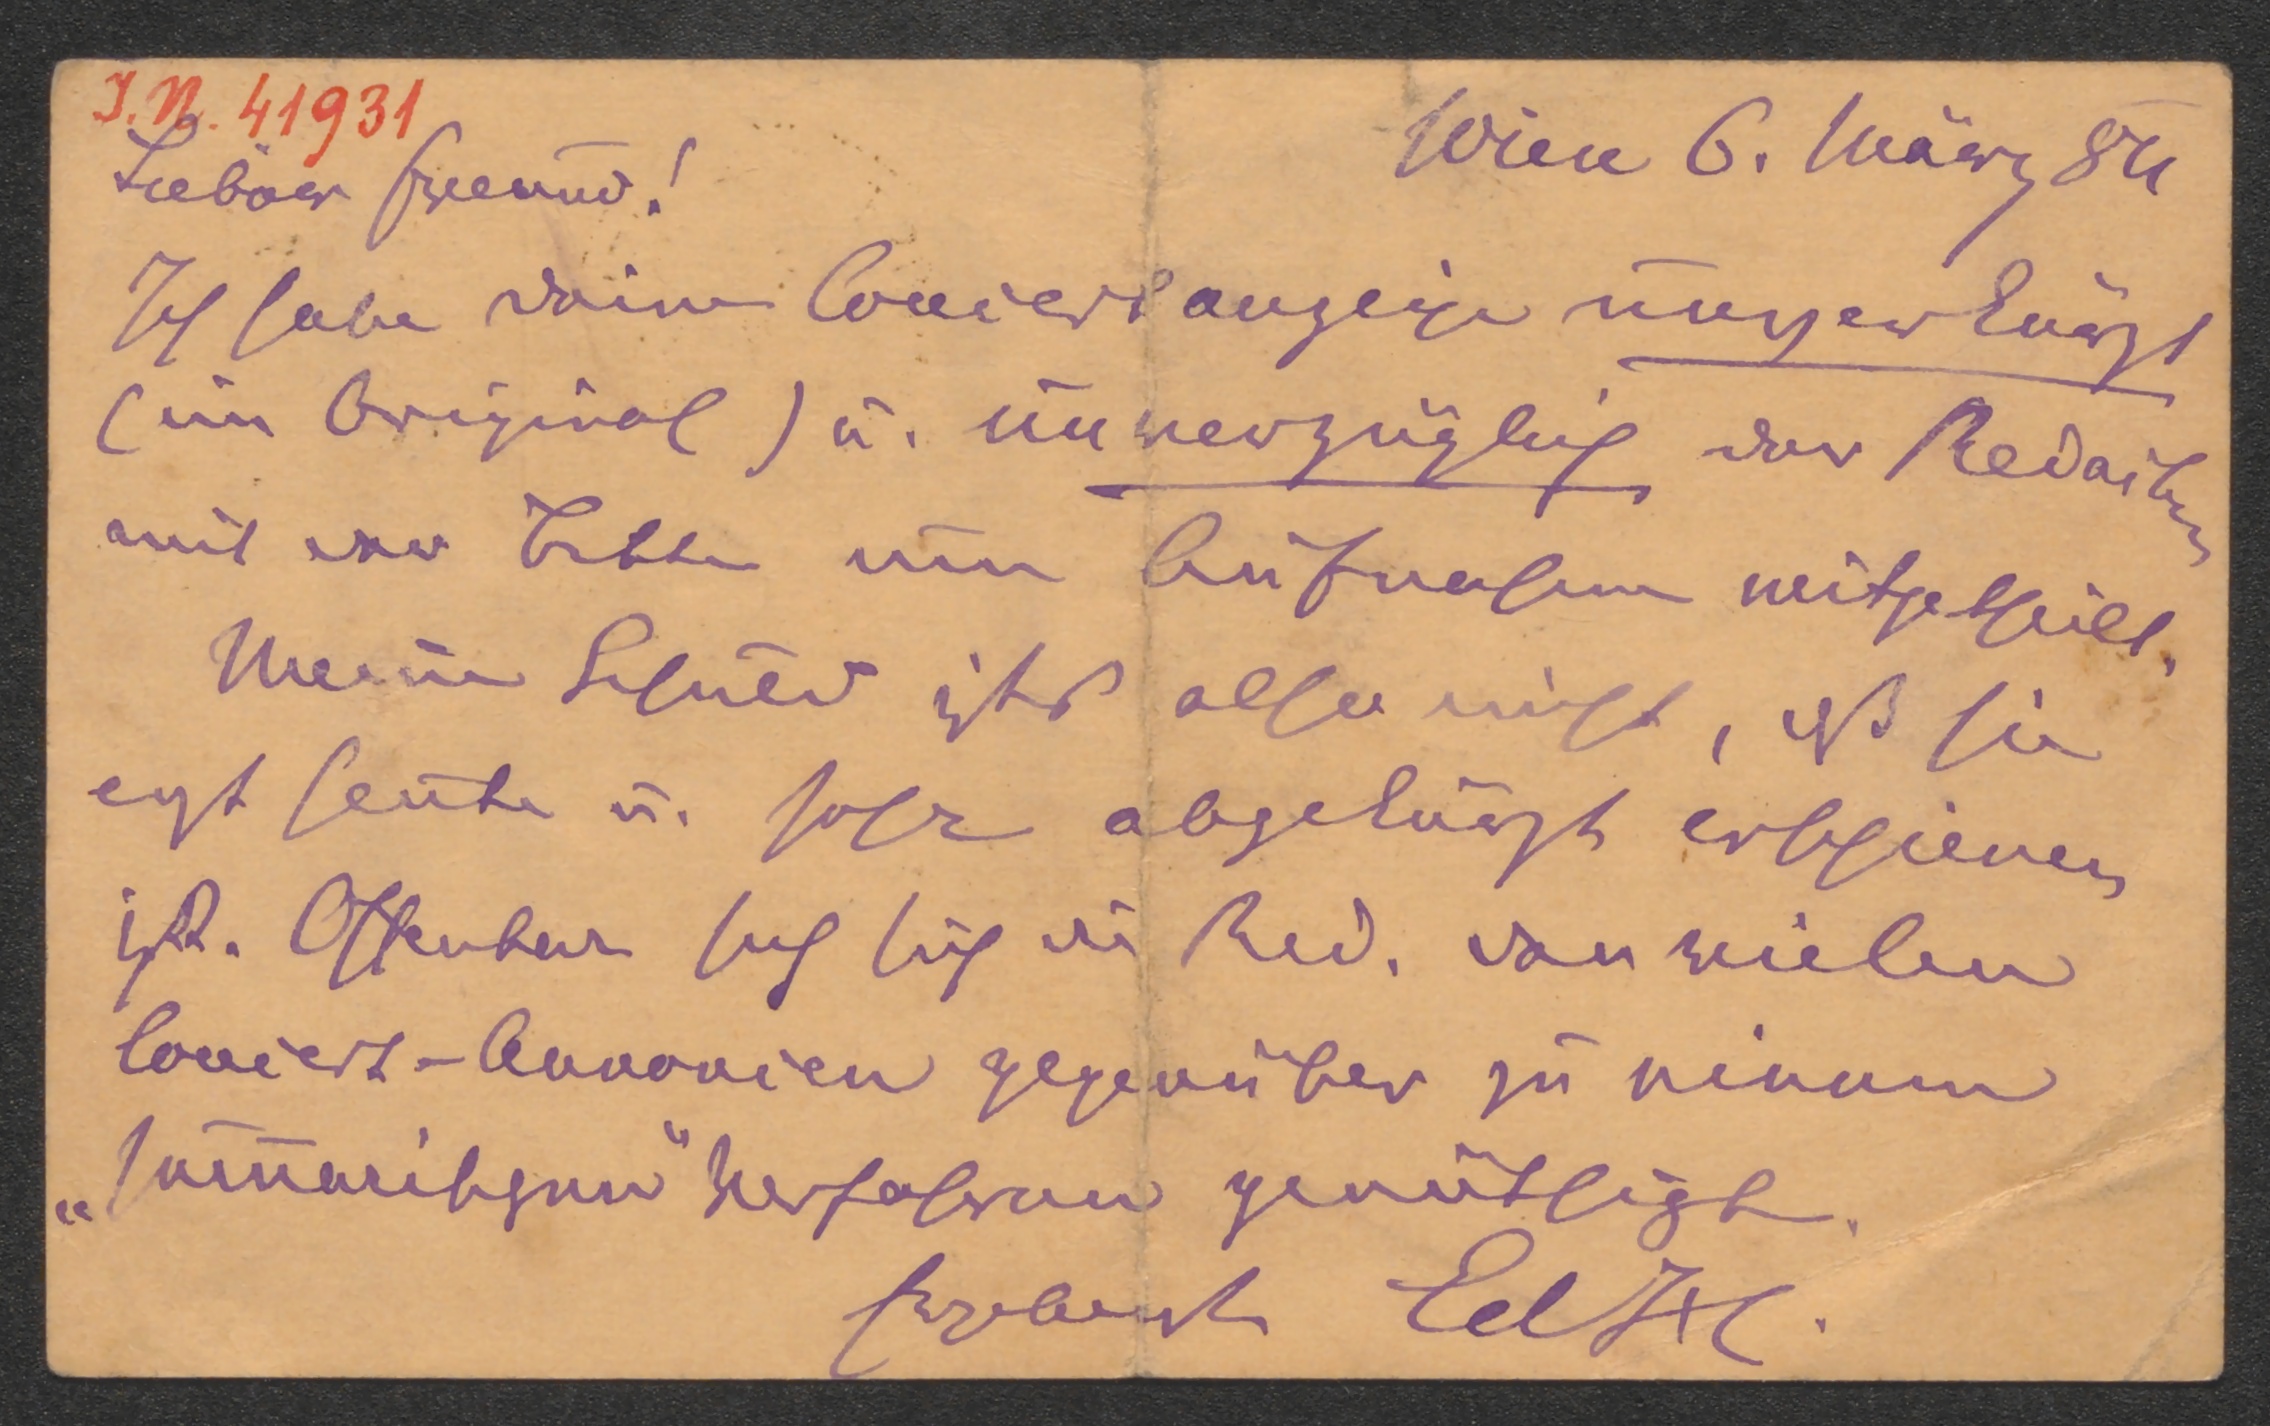 I.N. 41931
Wien 6. März 84
Lieber Freund!
Ich habe deine Concertanzeige unverkürzt
(im Original) u. unverzüglich der Redaction
mit der Bitte um Aufnahme mitgetheilt.
Meine Schuld ists also nicht, daß sie
erst heute u. sehr abgekürzt erschienen
ist. Offenbar sich die Red. den vielen
Concert-Annoncen gegenüber zu einem
„sum̅arischen" Verfahren genöthigt.
Ergebenst Ed H.